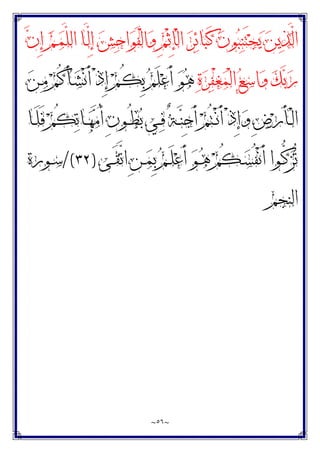 الَّذِينَ يَجْتَنِبُونَ كَبَائِرَ الْإِثْمِ وَالْفَوَاحِشَ إِلَّا اللَّمَمَ إِنَّ
رَبَّكَ وَاسِعُ الْمَغْفِرَةِ هُوَ أَعْلَمُ بِكُمْ إِذْ أَنْشَأَكُمْ مِنَ
الْأَرْضِ وَإِذْ أَنْتُمْ أَجِنَّةٌ فِي بُطُونِ أُمَّهَاتِكُمْ فَلَا
تُزَكُّوا أَنْفُسَكُمْ هُوَ أَعْلَمُ بِمَنِ اتَّقَى (٣٢)/سورة
النجم
~٥٦~